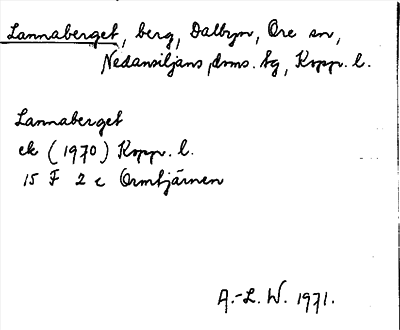 Lannaberget, berg, Dalbyn, Ore sn,
Nedansiljans doms. tg, Kopp. l.
Lannaberget
ek (1970) Kopp. l.
15 F 2 c Ormtjärnen
A.-L. W. 1971.